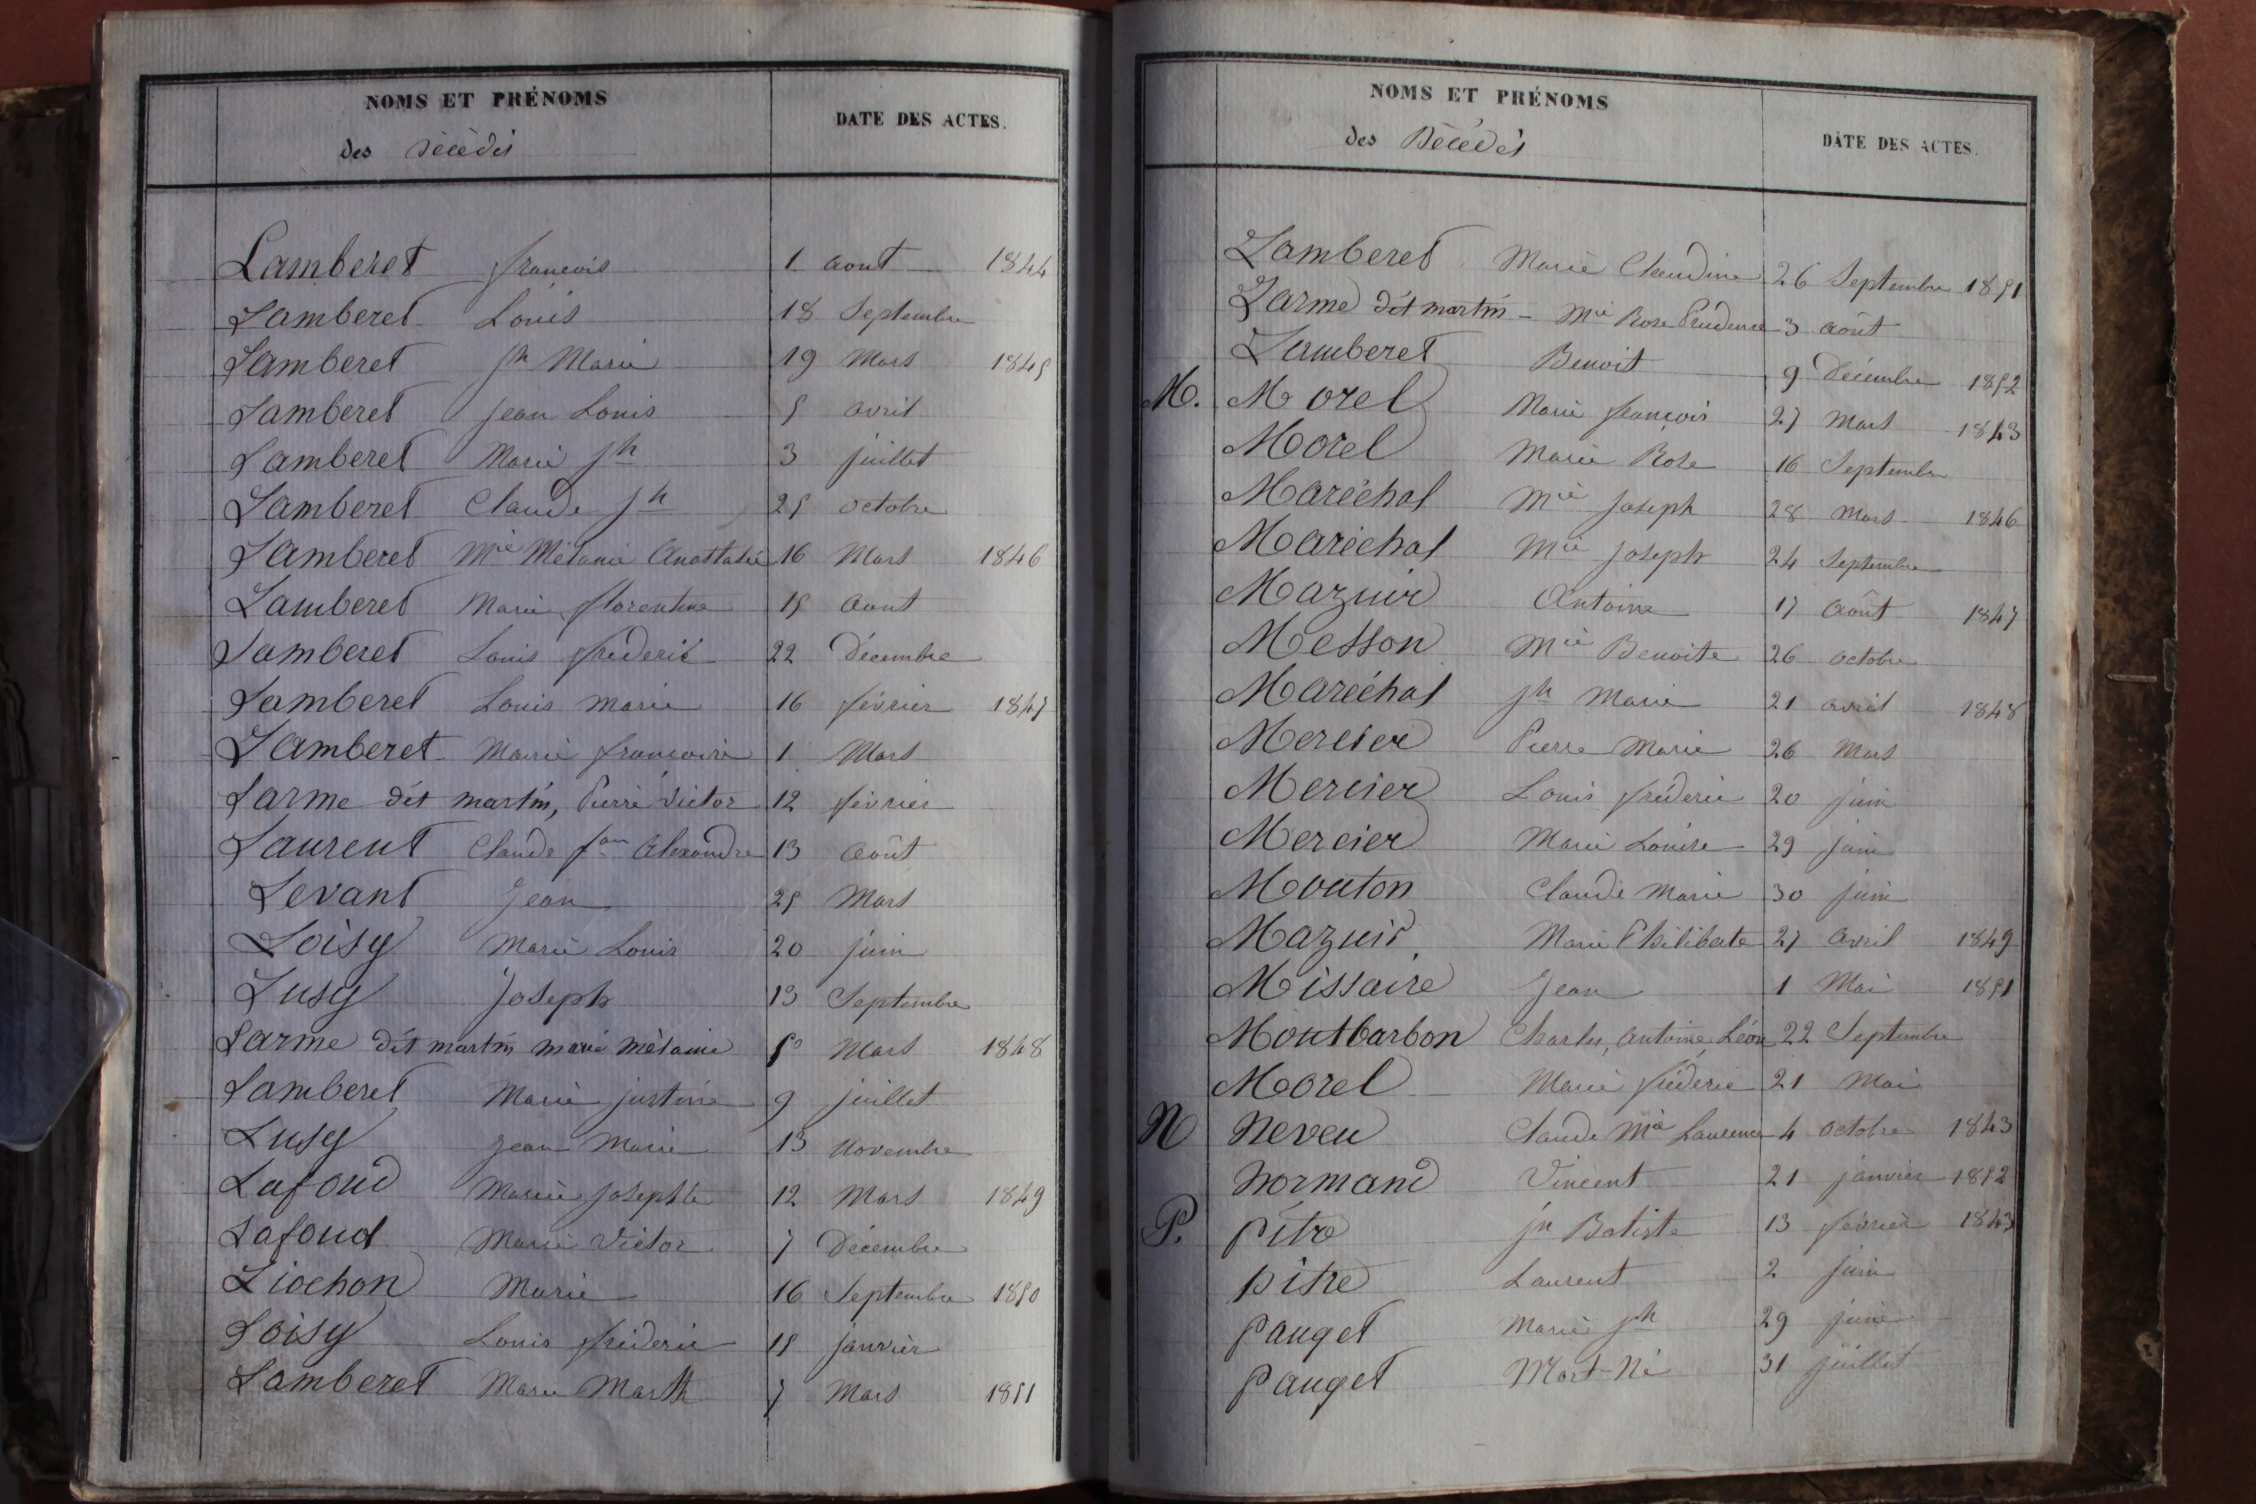 NOMS ET PRÉNOMS
des Décédés
DATE DES ACTES.
Lamberet françois 1 aout 1844
Lamberet Louis 18 Septembre
Lamberet Jh Marie 19 Mars 1845
Lamberet Jean Louis 5 avril
Lamberet Marie Jh 3 juillet
Lamberet Claude Jh 25 octobre
Lamberet Mie Mélanie Anasthasie 16 Mars 1846
Lamberet Marie florentine 15 Aout
Lamberet Louis frédéric 22 Décembre
Lamberet Louis Marie 16 février 1847
Lamberet Marie françoise 1 Mars
Larme dit martin, Pierre Victor 12 février
Laurent Claude fois Alexandre 13 Août
Levant Jean 25 Mars
Loisy Marie Louis 20 juin
Lusy Joseph 13 Septembre
Larme dit martin marie Mélanie Mars 1848
Lamberet Marie justine 9 juillet
Lusy Jean Marie 13 novembre
Lafond Marie Josephte 12 Mars 1849
Lafond Marie Victor 7 Décembre
Liochon Marie 16 Septembre 1850
Loisy Louis frédéric 15 janvier
Lamberet Marie Marth 7 Mars 1851
NOMS ET PRÉNOMS
des Décédés
DATE DES ACTES.
Lamberet Marie Claudine 26 Septembre 1851
Larme dit martin - Mie Rose Prudence 3 août
Lamberet Benoit 9 Décembre 1852
M. Morel Marie françois 27 Mars 1843
Morel Marie Rose 16 Septembre
Maréchal Mie Joseph 28 Mars 1846
Maréchal Mie Joseph 24 Septembre
Mazuir Antoine 17 Août 1847
Messon Mie Benoite 26 octobre
Maréchal Jh Marie 21 avril 1848
Mercier Pierre Marie 26 Mars
Mercier Louis frédéric 20 juin
Mercier Marie Louise 29 juin
Mouton Claude Marie 30 juin
Mazuir Marie Philiberte 27 Avril 1849
Missaire Jean 1 Mai 1851
Montbarbon Charles, Antoine, Léon 22 Septembre
Morel Marie frédéric 21 Mai
N Neveu Claude Mie Laurence 4 Octobre 1843
Normand Vincent 21 janvier 1852
P. Pitre Jn Batiste 13 février 1843
Pitre Laurent 2 juin
Pauget Marie Jh 29 juin
Pauget Mort-Né 31 juillet